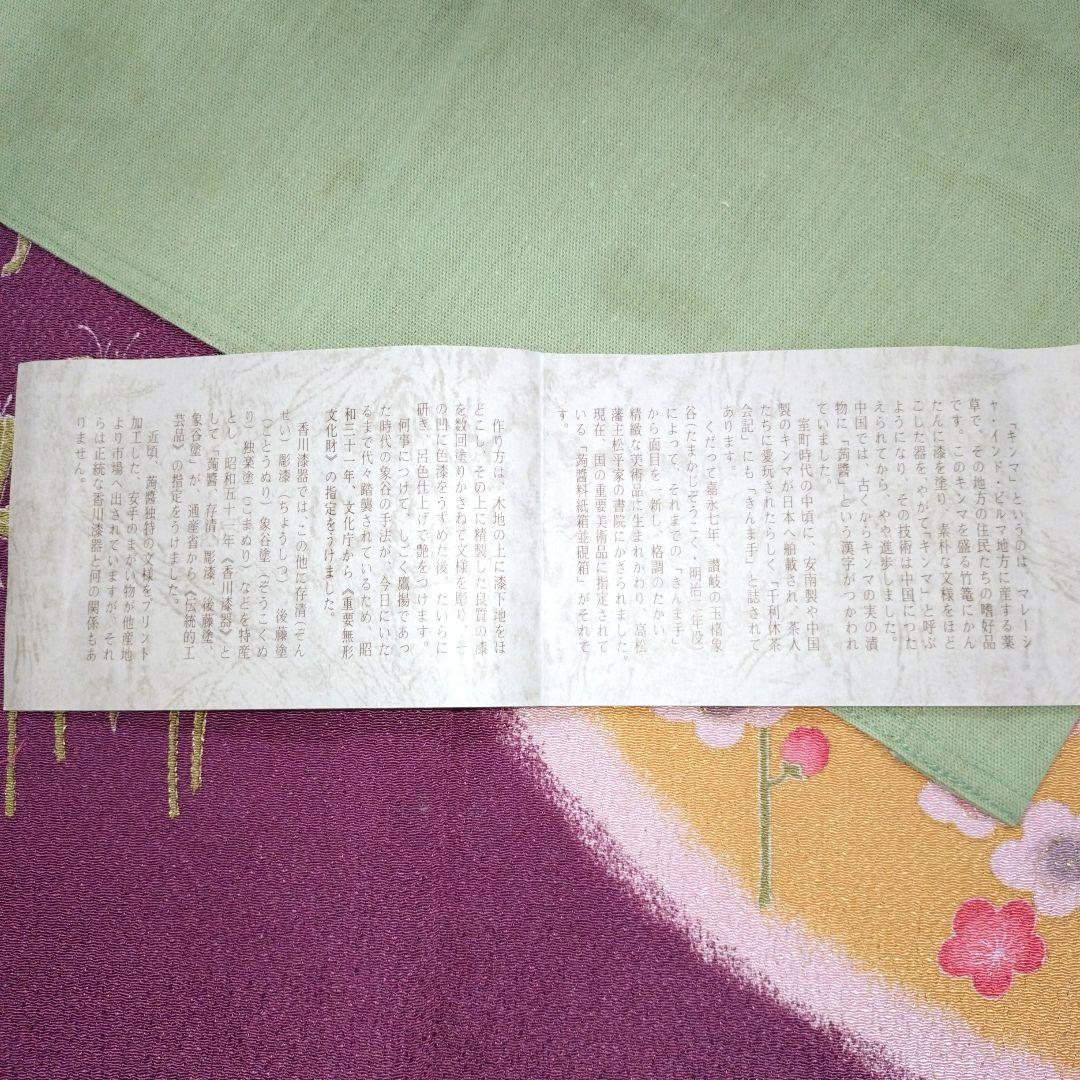 「キンマ」というのは、マレーシ
ャ・インド・ビルマ地方に産する薬
草で、その地方の住民たちの嗜好品
です。このキンマを盛る竹篭にかん
たんに漆を塗り、素朴な文様をほど
こした器を、やがて「キンマ」と呼ぶ
ようになり、その技術は中国につた
えられてから、やや進歩しました。
中国では、古くからキンマの実の漬
物に「蒟醬」という漢字がつかわれ
ていました。
室町時代の中頃に、安南製や中国
製のキンマが日本へ舶載され、茶人
たちに愛玩されたらしく、「千利休茶
会記」にも「きんま手」と誌されて
あります。
くだって嘉永七年、讃岐の玉楮家
谷(たまかじぞうこく・明治二年歿)
によって、それまでの「きんま手」
から面目を一新し、格調のたかい
精緻な美術品に生まれかわり、高松
藩主松平家の書院にかざられました。
現在、国の重要美術品に指定されて
いる「蒟醬料紙箱並硯箱」がそれで
す。
作り方は、木地の上に漆下地をほ
どこし、その上に精製した良質の漆
を数回塗りかさねて文様を彫り、そ
の凹に色漆をうずめた後、たいらに
研ぎ、呂色仕上げで艶をつけます。
何事につけて、しごく鷹揚であっ
た時代の象谷の手法が、今日にいた
るまで代々踏襲されているため、昭
和三十一年、文化庁から《重要無形
文化財》の指定をうけました。
香川漆器では、この他に存清(ぞん
せい)彫漆(ちょうしつ)後藤塗
(ごとうぬり)象谷塗(ぞうこくぬ
り)独楽塗(こまぬり)などを特産
とし、昭和五十一年《香川漆器》と
して「蒟醬、存清、彫漆、後藤塗、
象谷塗」が、通産省から《伝統的工
芸品》の指定をうけました。
近頃、蒟醬独特の文様をプリント
加工した、安手のまがい物が他産地
より市場へ出されていますが、それ
らは正統な香川漆器と何の関係もあ
りません。